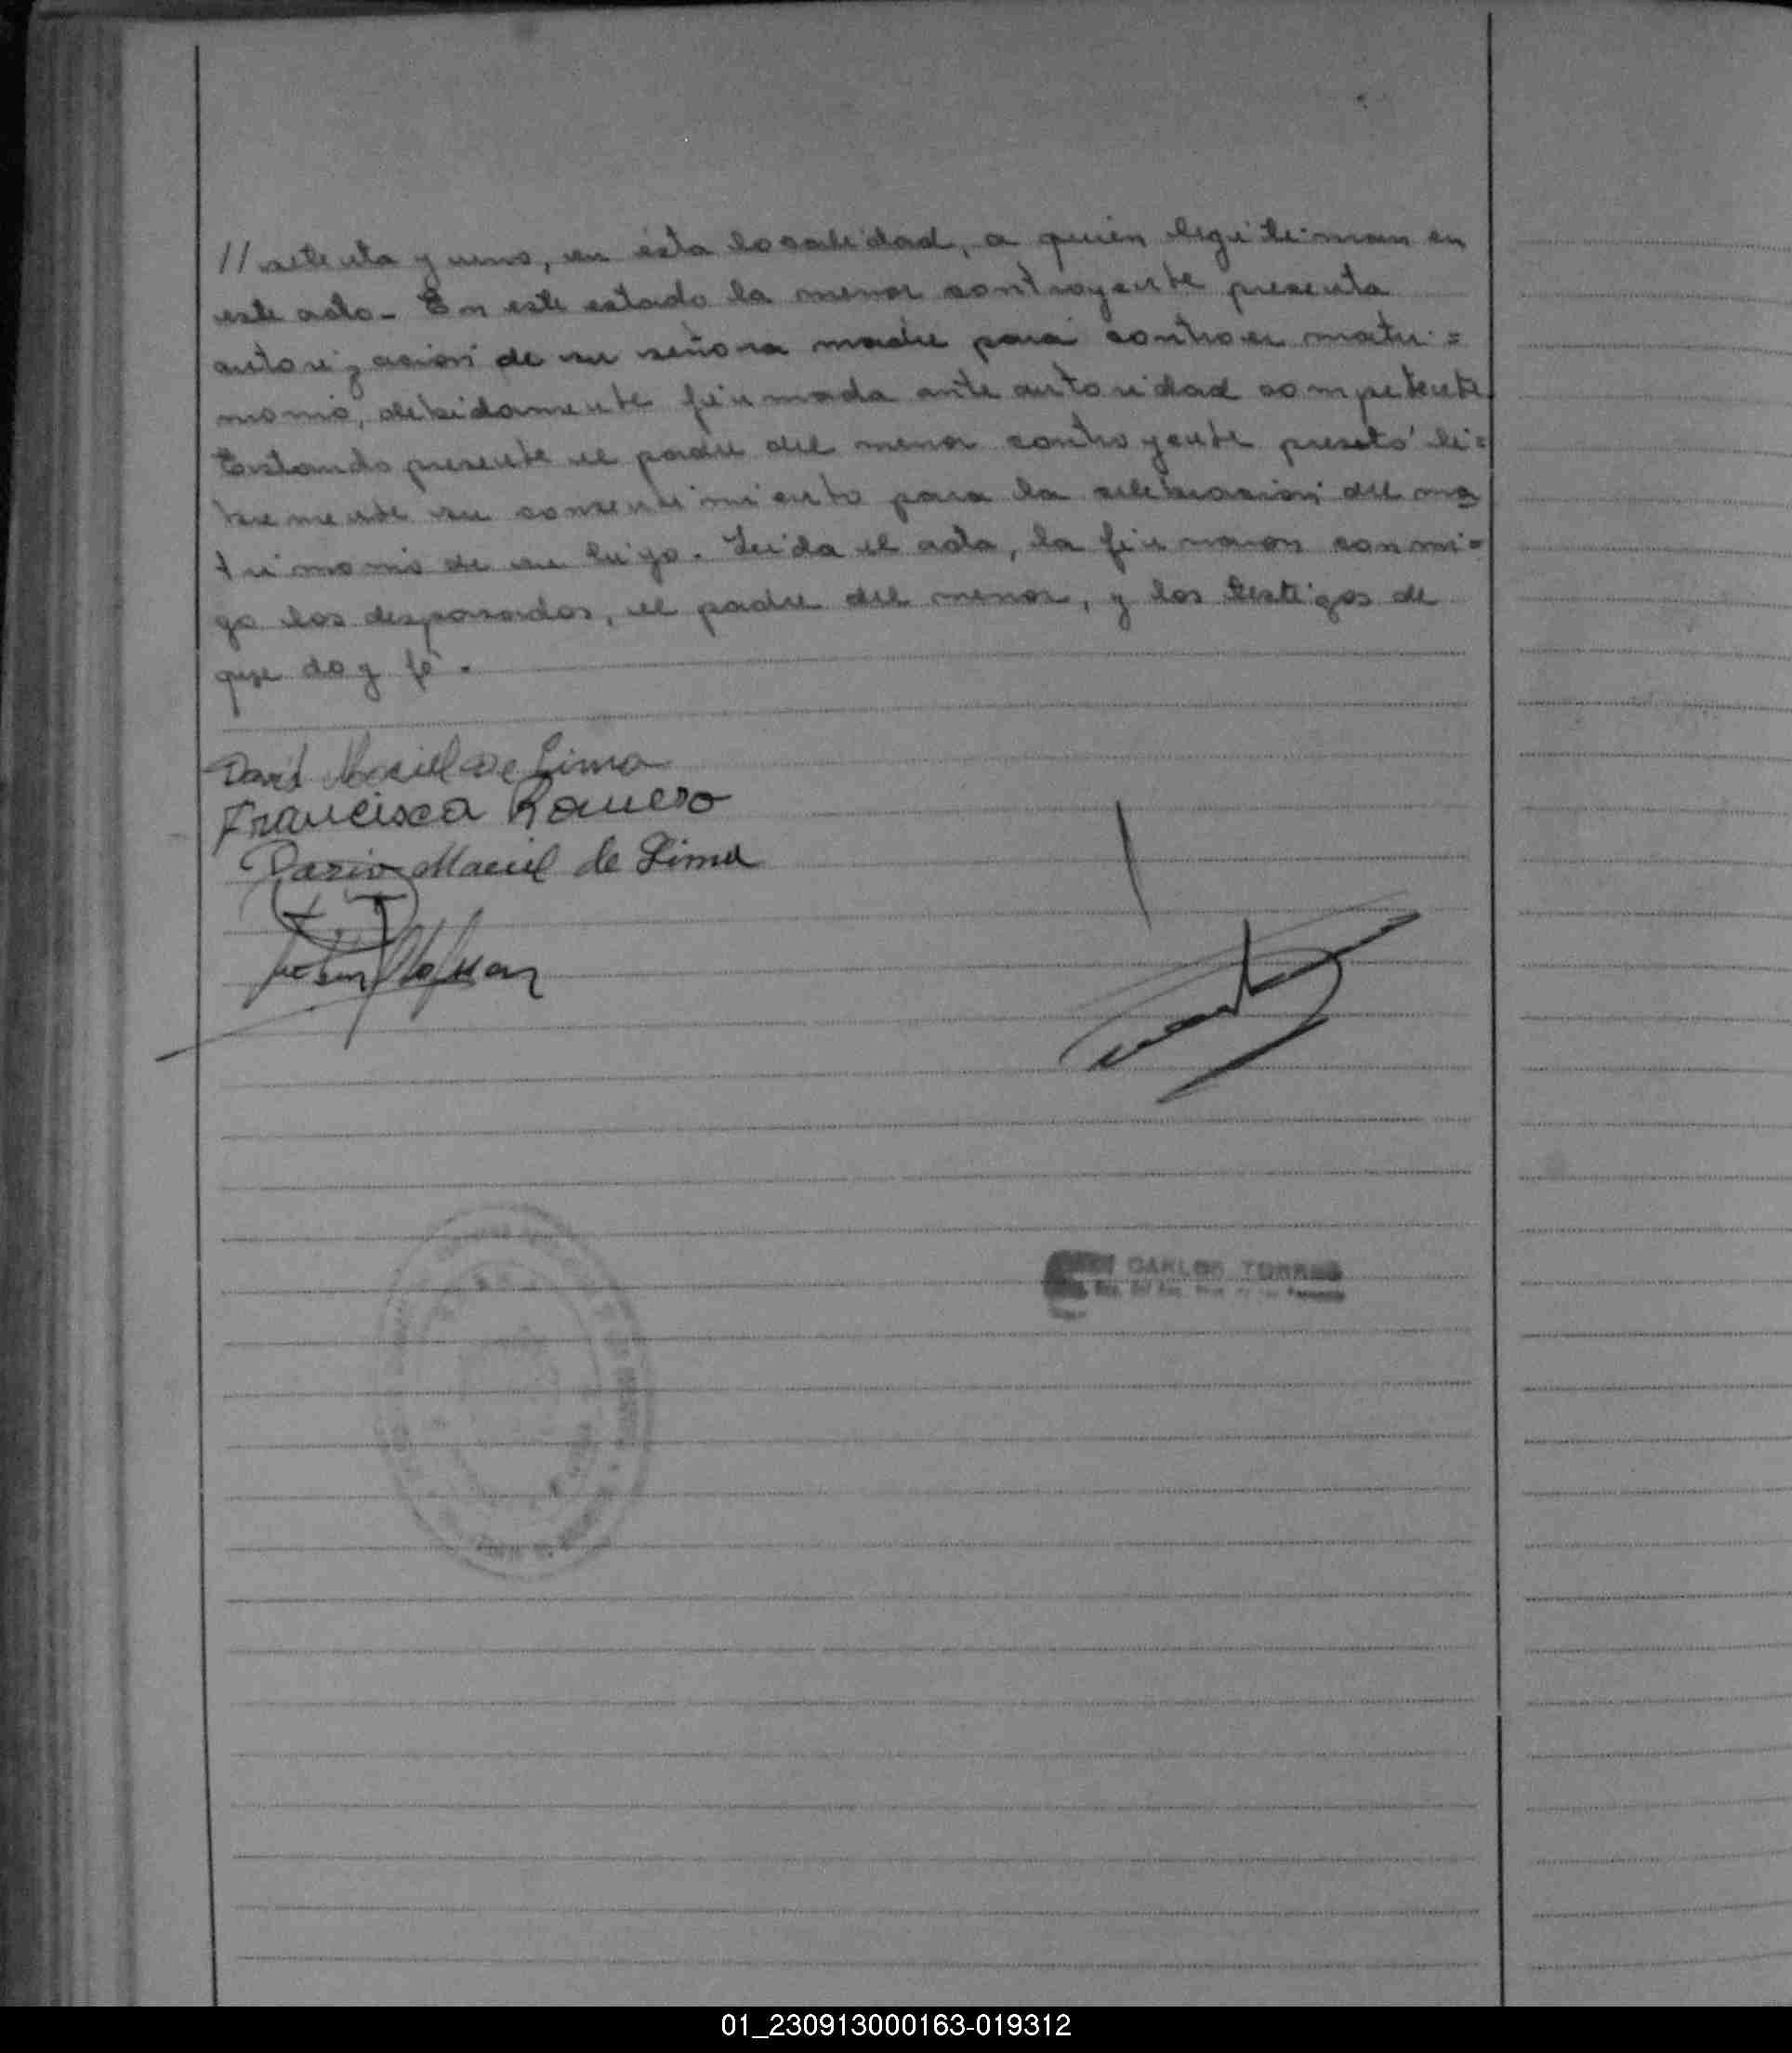 // setenta y uno, en ésta localidad, a quién legitiman en
este acto.- En este estado la menor contrayente presenta
autorización de su señora madre para contraer matri=
monio, debidamente firmada ante autoridad competente.
Estando presente el padre del menor contrayente presetó li=
bremente su consentimiento para la celebración del ma
trimonio de su hijo. Leida el acta, la firmaron conmi=
go los desposados, el padre del menor, y los testigos de
que doy fé.
David Maciel De Lima
Francisca Romero
Dario Maciel de Lima
CARLOS TORRES
01_230913000163-019312